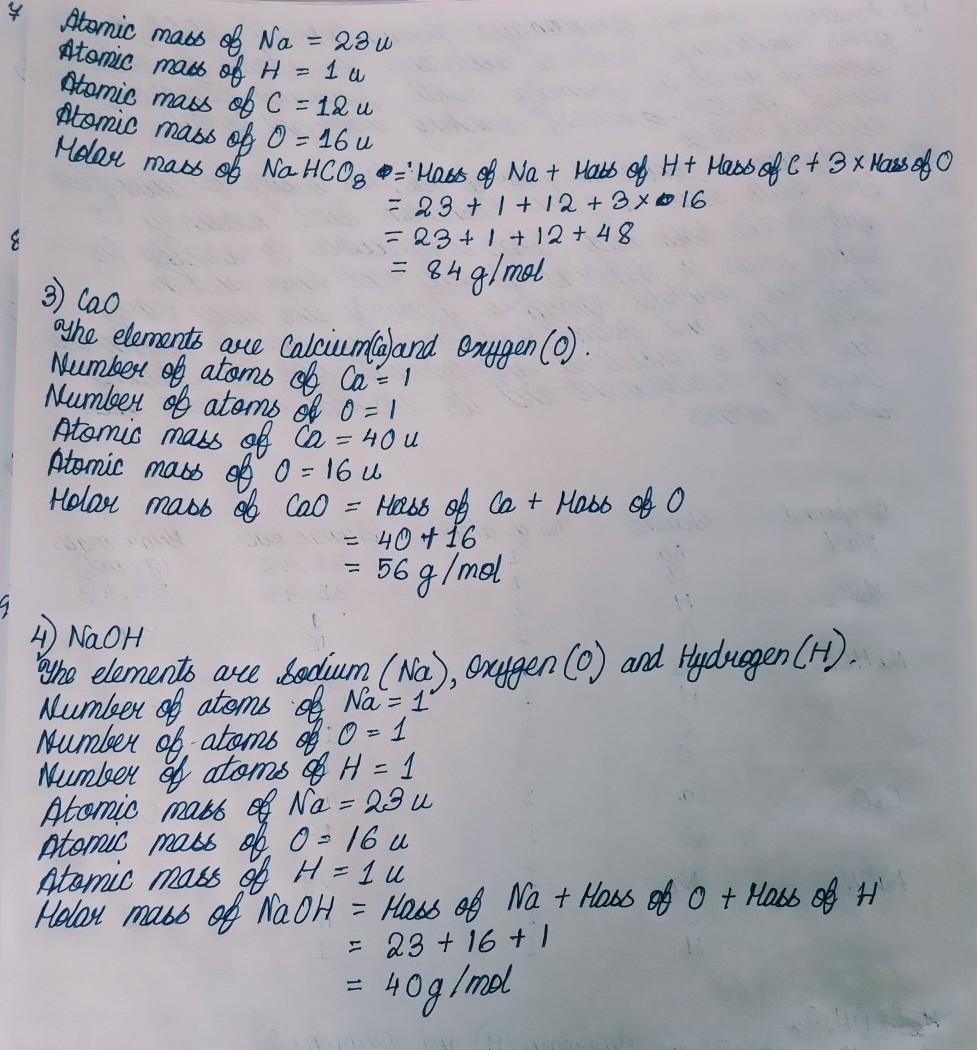 7
Atomic mass of Na = 23 u
Atomic mass of H = 1 u
Atomic mass of C = 12 u
Atomic mass of O = 16 u
Molar mass of NaHCO₃ = Mass of Na + Mass of H + Mass of C + 3 × Mass of O
= 23 + 1 + 12 + 3 × 16
8
= 23 + 1 + 12 + 48
= 84 g/mol
3) CaO
The elements are Calcium(Ca) and Oxygen (O).
Number of atoms of Ca = 1
Number of atoms of O = 1
Atomic mass of Ca = 40 u
Atomic mass of O = 16 u
Molar mass of CaO = Mass of Ca + Mass of O
= 40 + 16
= 56 g/mol
9
4) NaOH
The elements are Sodium (Na), Oxygen (O) and Hydrogen (H).
Number of atoms of Na = 1
Number of atoms of O = 1
Number of atoms of H = 1
Atomic mass of Na = 23 u
Atomic mass of O = 16 u
Atomic mass of H = 1 u
Molar mass of NaOH = Mass of Na + Mass of O + Mass of H
= 23 + 16 + 1
= 40 g/mol